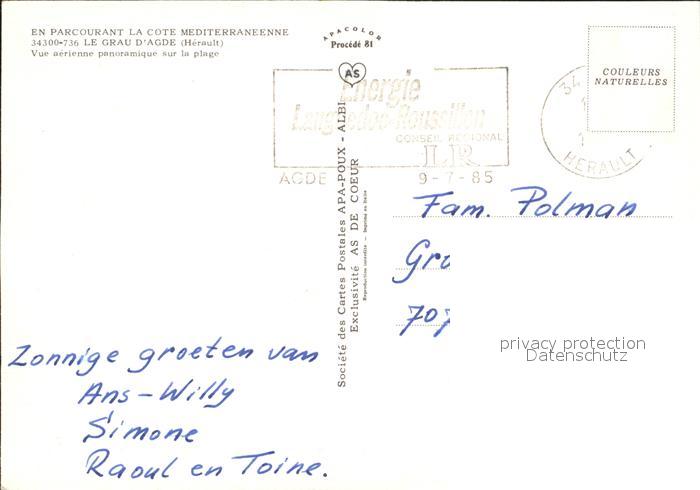 EN PARCOURANT LA COTE MEDITERRANEENNE
34300-736 LE GRAU D'AGDE (Hérault)
Vue aérienne panoramique sur la plage
APACOLOR
Procédé 81
AS
COULEURS
NATURELLES
Energie
Languedoc-Roussillon
CONSEIL REGIONAL
LR
AGDE 9-7-85
34
HERAULT
Société des Cartes Postales APA-POUX - ALBI
Exclusivité AS DE COEUR
Reproduction interdite - Imprimé en Suisse
Fam. Polman
Gro
707
privacy protection
Datenschutz
Zonnige groeten van
Ans-Willy
Simone
Raoul en Toine.